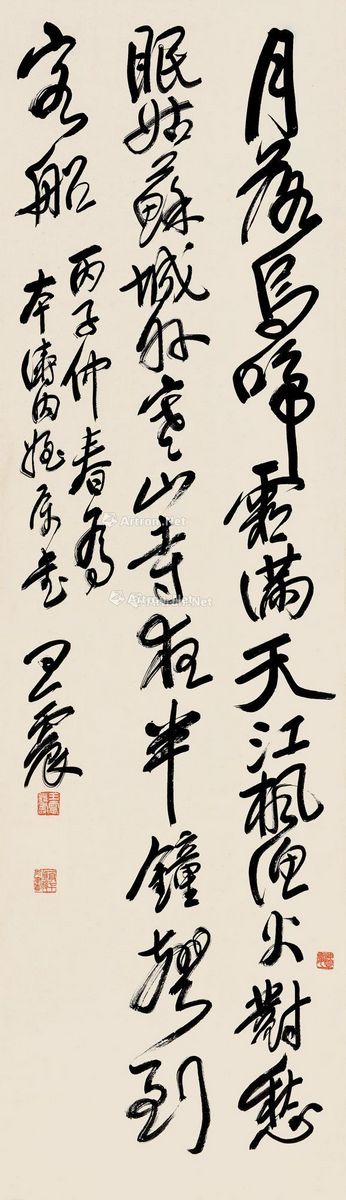 月落烏啼霜滿天江楓漁火對愁
眠姑蘇城外寒山寺夜半鐘聲到
客船
丙子仲春為
本濤內姪屬
王震
Artron.Net
Artron.Net